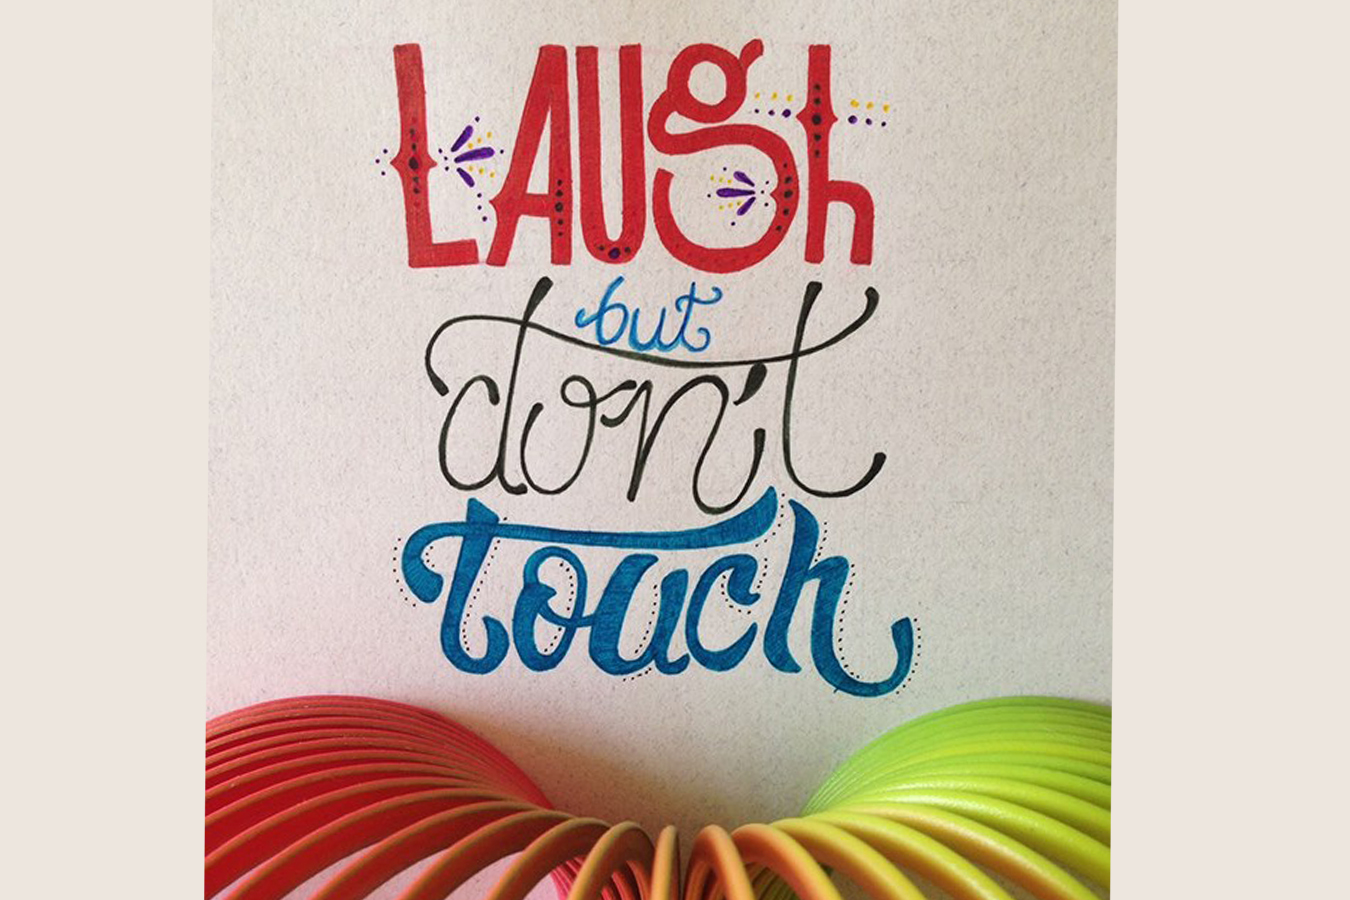 Laugh
but
don't
touch